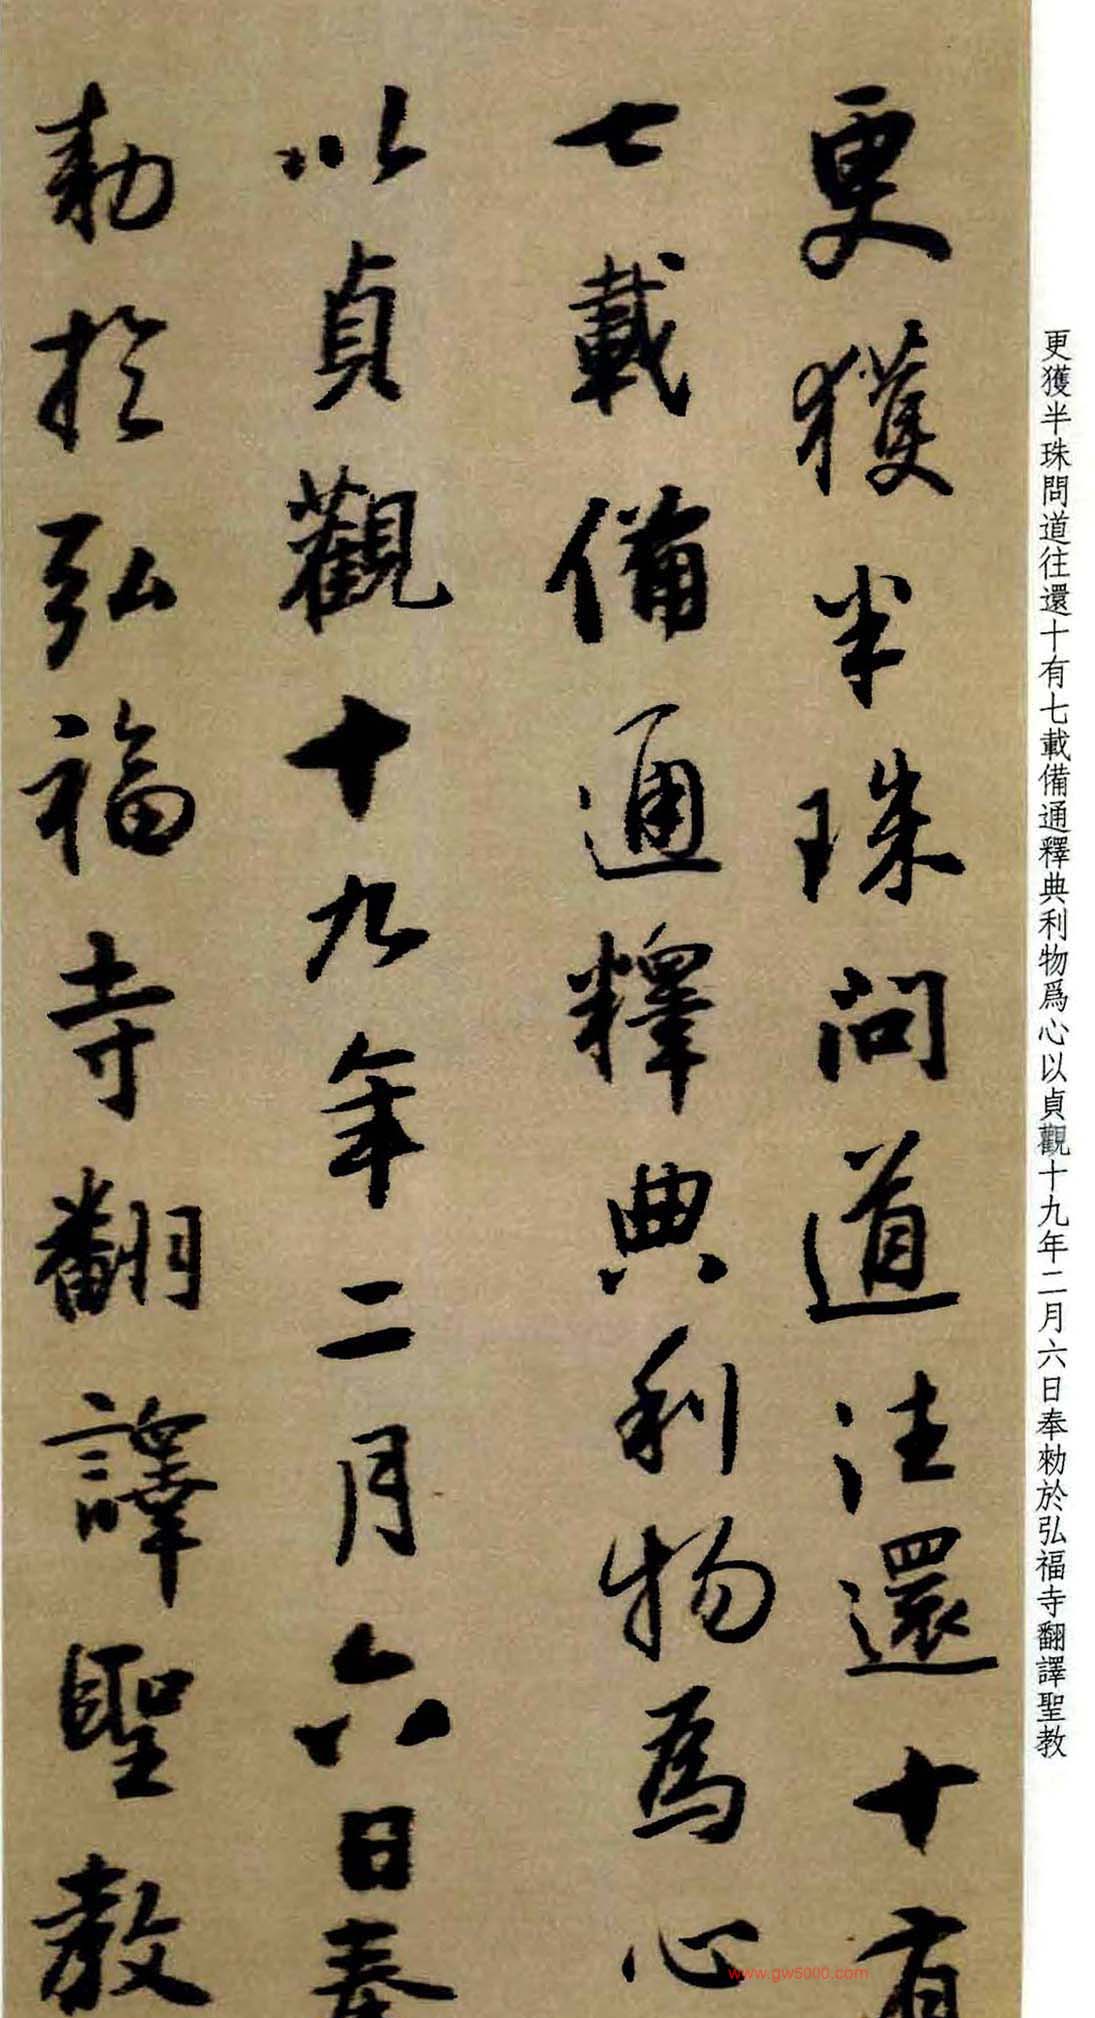 更獲半珠問道往還十有七載備通釋典利物爲心以貞觀十九年二月六日奉勑於弘福寺翻譯聖教
更獲半珠問道往還十有
七載備通釋典利物為心
以貞觀十九年二月六日奉
勑於弘福寺翻譯聖教
www.gw5000.com